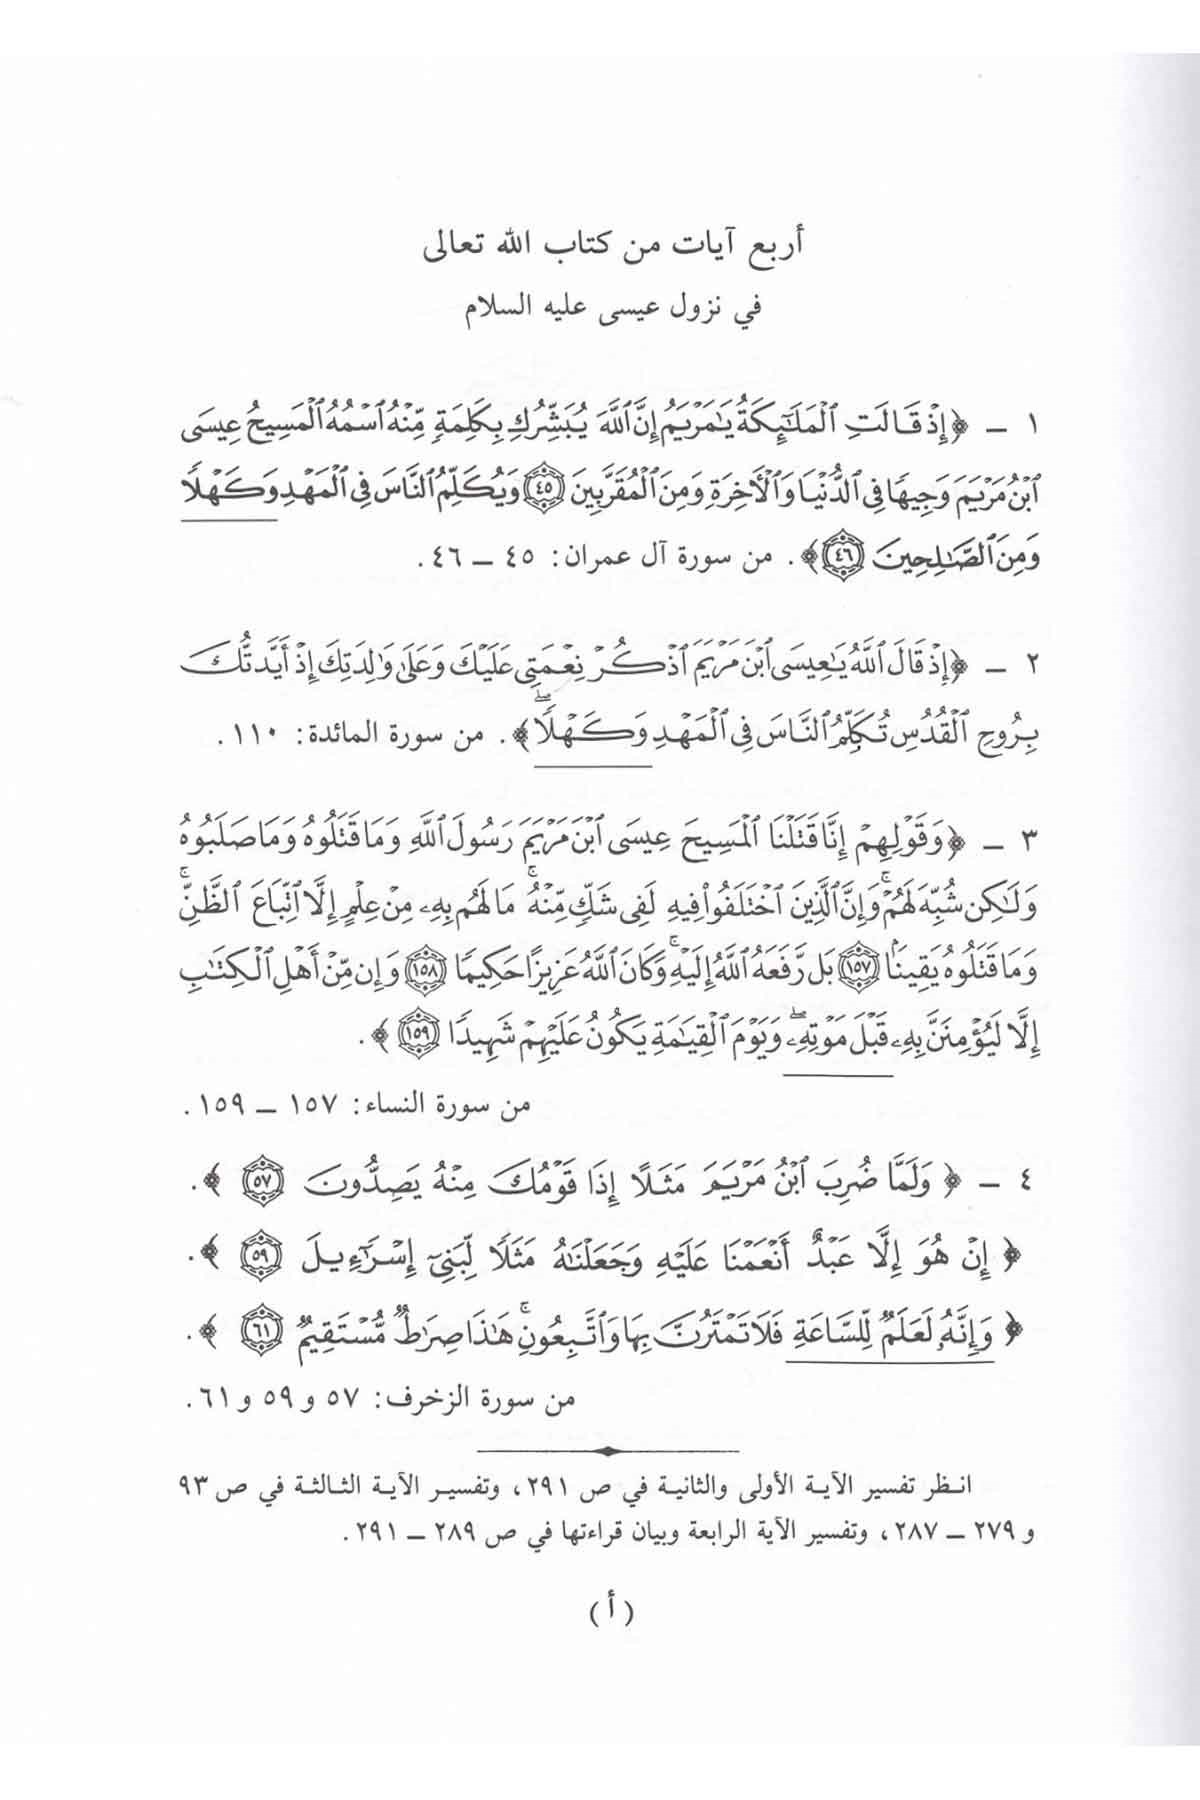 أربع آيات من كتاب الله تعالى
في نزول عيسى عليه السلام
١ ــ ﴿إِذْ قَالَتِ ٱلْمَلَٰٓئِكَةُ يَٰمَرْيَمُ إِنَّ ٱللَّهَ يُبَشِّرُكِ بِكَلِمَةٍ مِّنْهُ ٱسْمُهُ ٱلْمَسِيحُ عِيسَى
ٱبْنُ مَرْيَمَ وَجِيهًا فِى ٱلدُّنْيَا وَٱلْأَخِرَةِ وَمِنَ ٱلْمُقَرَّبِينَ ٤٥ وَيُكَلِّمُ ٱلنَّاسَ فِى ٱلْمَهْدِ وَكَهْلًا
وَمِنَ ٱلصَّٰلِحِينَ ٤٦﴾. من سورة آل عمران: ٤٥ ــ ٤٦.
٢ ــ ﴿إِذْ قَالَ ٱللَّهُ يَٰعِيسَى ٱبْنَ مَرْيَمَ ٱذْكُرْ نِعْمَتِى عَلَيْكَ وَعَلَىٰ وَٰلِدَتِكَ إِذْ أَيَّدتُّكَ
بِرُوحِ ٱلْقُدُسِ تُكَلِّمُ ٱلنَّاسَ فِى ٱلْمَهْدِ وَكَهْلًا ۖ﴾. من سورة المائدة: ١١٠.
٣ ــ ﴿وَقَوْلِهِمْ إِنَّا قَتَلْنَا ٱلْمَسِيحَ عِيسَى ٱبْنَ مَرْيَمَ رَسُولَ ٱللَّهِ وَمَا قَتَلُوهُ وَمَا صَلَبُوهُ
وَلَٰكِن شُبِّهَ لَهُمْ ۚ وَإِنَّ ٱلَّذِينَ ٱخْتَلَفُوا۟ فِيهِ لَفِى شَكٍّ مِّنْهُ ۚ مَا لَهُم بِهِۦ مِنْ عِلْمٍ إِلَّا ٱتِّبَاعَ ٱلظَّنِّ ۚ
وَمَا قَتَلُوهُ يَقِينًۢا ١٥٧ بَل رَّفَعَهُ ٱللَّهُ إِلَيْهِ ۚ وَكَانَ ٱللَّهُ عَزِيزًا حَكِيمًا ١٥٨ وَإِن مِّنْ أَهْلِ ٱلْكِتَٰبِ
إِلَّا لَيُؤْمِنَنَّ بِهِۦ قَبْلَ مَوْتِهِۦ ۖ وَيَوْمَ ٱلْقِيَٰمَةِ يَكُونُ عَلَيْهِمْ شَهِيدًا ١٥٩ ﴾.
من سورة النساء: ١٥٧ ــ ١٥٩.
٤ ــ ﴿ وَلَمَّا ضُرِبَ ٱبْنُ مَرْيَمَ مَثَلًا إِذَا قَوْمُكَ مِنْهُ يَصِدُّونَ ٥٧ ﴾.
﴿ إِنْ هُوَ إِلَّا عَبْدٌ أَنْعَمْنَا عَلَيْهِ وَجَعَلْنَٰهُ مَثَلًا لِّبَنِىٓ إِسْرَٰٓءِيلَ ٥٩ ﴾.
﴿ وَإِنَّهُۥ لَعَلَمٌ لِّلسَّاعَةِ فَلَا تَمْتَرُنَّ بِهَا وَٱتَّبِعُونِ ۚ هَٰذَا صِرَٰطٌ مُّسْتَقِيمٌ ٦١ ﴾.
من سورة الزخرف: ٥٧ و ٥٩ و ٦١.
انـظر تفسير الآيـة الأولى والثانية في ص ٢٩١، وتفسيـر الآيـة الثـالثـة في ص ٩٣
و ٢٧٩ ــ ٢٨٧، وتفسير الآية الرابعة وبيان قراءتها في ص ٢٨٩ ــ ٢٩١.
( أ )